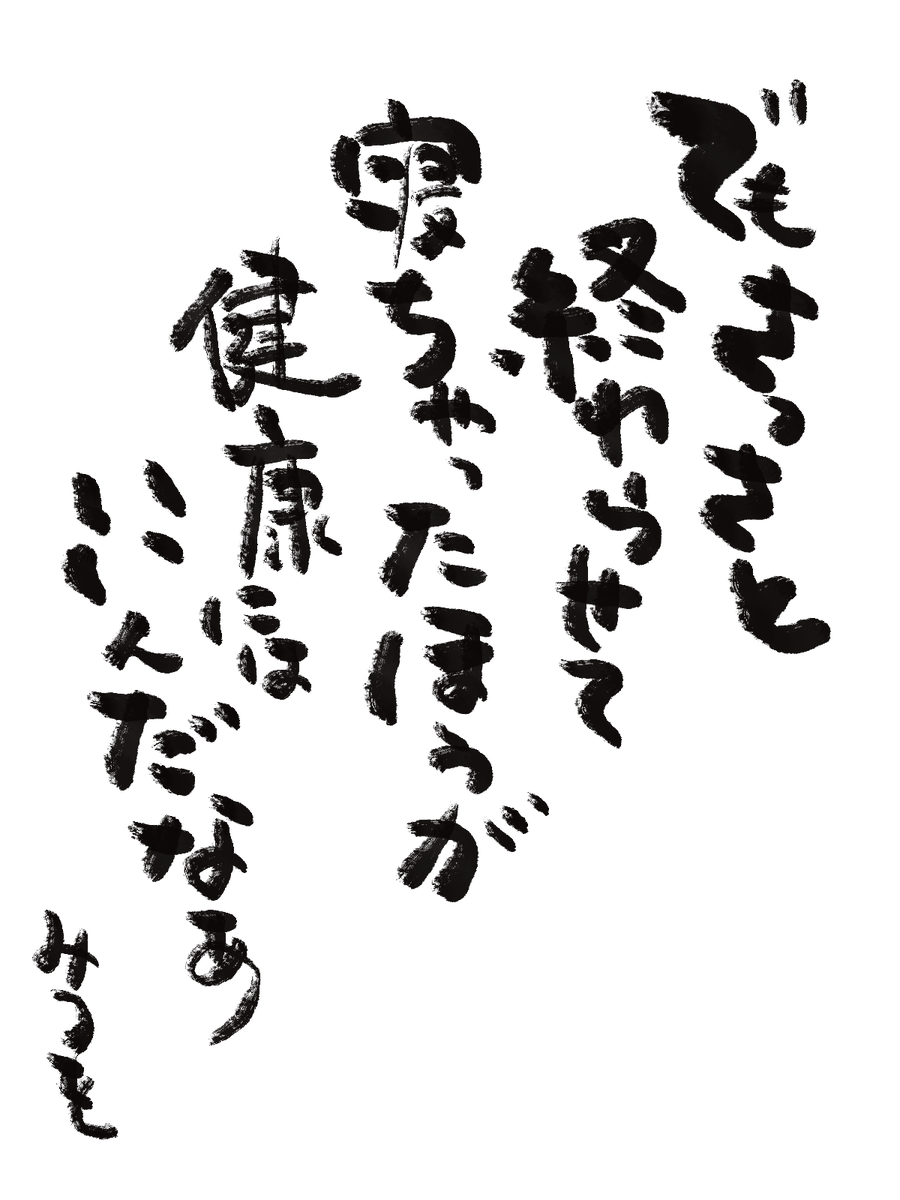 でもさっさと
終わらせて
寝ちゃったほうが
健康には
いいんだなあ
みつを